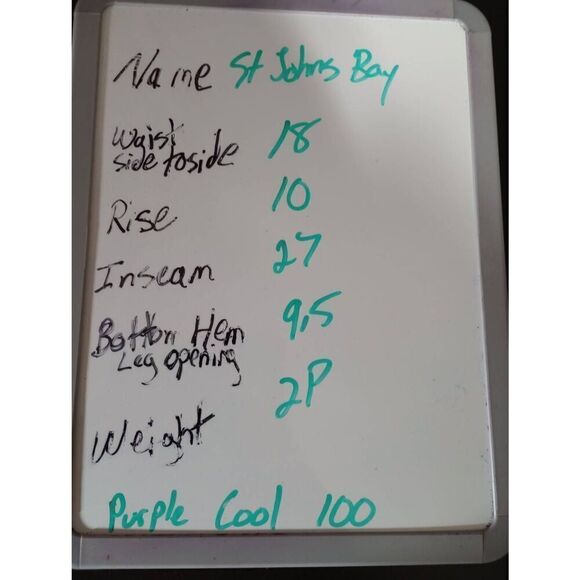 Name St Johns Bay
Waist
side to side 18
Rise 10
Inseam 27
Bottom Hem 9.5
Leg opening
Weight 2P
Purple Cool 100